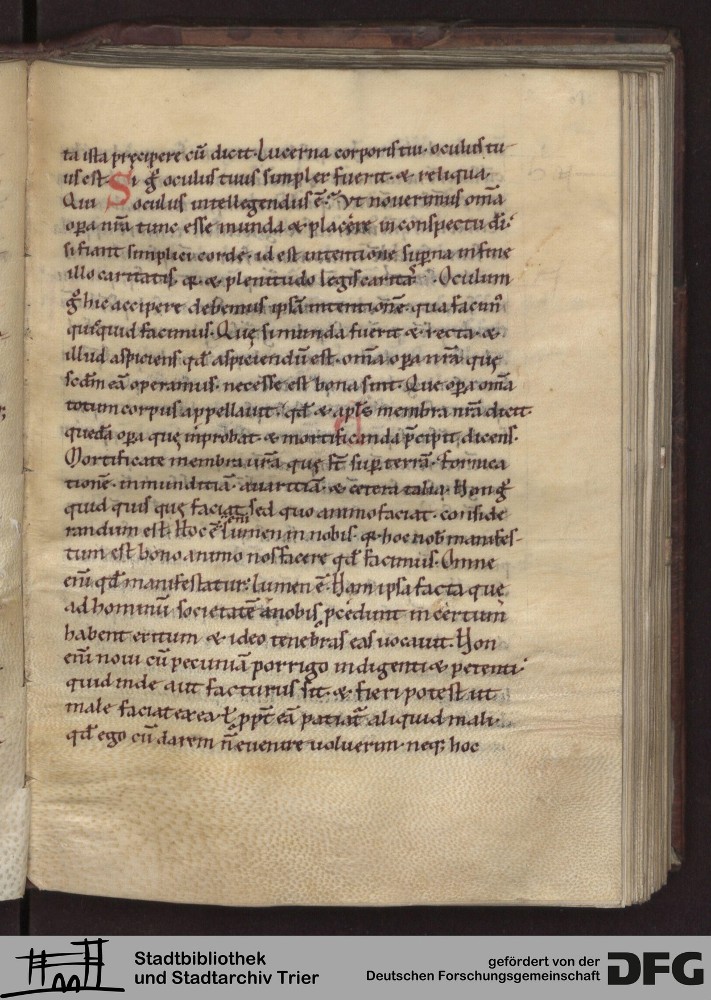 ta ista pręcipere cū dicit. Lucerna corporis tui. oculus tu
us est. Si g̊ oculus tuus simplex fuerit. & reliqua.
Qui oculus intellegendus ē. Vt nouerimus om̄a
oꝑa nr̄a tunc esse munda & placere in conspectu dī.
si fiant simplici corde. id est intentione suꝑna in fine
illo caritatis. q̨ & plenitudo legis caritas. Oculum
g̊ hic accipere debemus ipsā intentionē. qua facim᷒
quicquid facimus. Quę si munda fuerit & recta. &
illud aspiciens qđ aspiciendū est. om̄a oꝑa nr̄a quę
scd̄m eā operamur. necesse est bona sint. Que oꝑa om̄a
totum corpus appellauit. qđ & apłs membra nr̄a dicit
quedā oꝑa quę inprobat. & mortificanda p̄cipit, dicens.
Mortificate membra vr̄a quę st̄ suꝑ terrā. fornica
tionē. inmunditiā. auaritiā. & cetera talia. Non g̊
quid quis quę faciat. sed quo animo faciat. conside
randum est. Hoc ē enim lumen in nobis. q̨ hoc nob̄ manifes-
tum est bono animo nos facere qđ facimus. Omne
enī qđ manifestatur. lumen ē. Nam ipsa facta que
ad hominū societatē a nobis ꝓcedunt incertum
habent exitum. & ideo tenebras eas uocauit. Non
enī noui cū pecuniā porrigo indigenti & petenti
quid inde aut facturus sit. & fieri potest ut
male faciat ex ea. ł ꝓpt̄ eā patiat᷑ aliquid mali.
qđ ego cū darem n̄ euenire uoluerim. neq; hoc
Stadtbibliothek
und Stadtarchiv Trier
gefördert von der
Deutschen Forschungsgemeinschaft
DFG